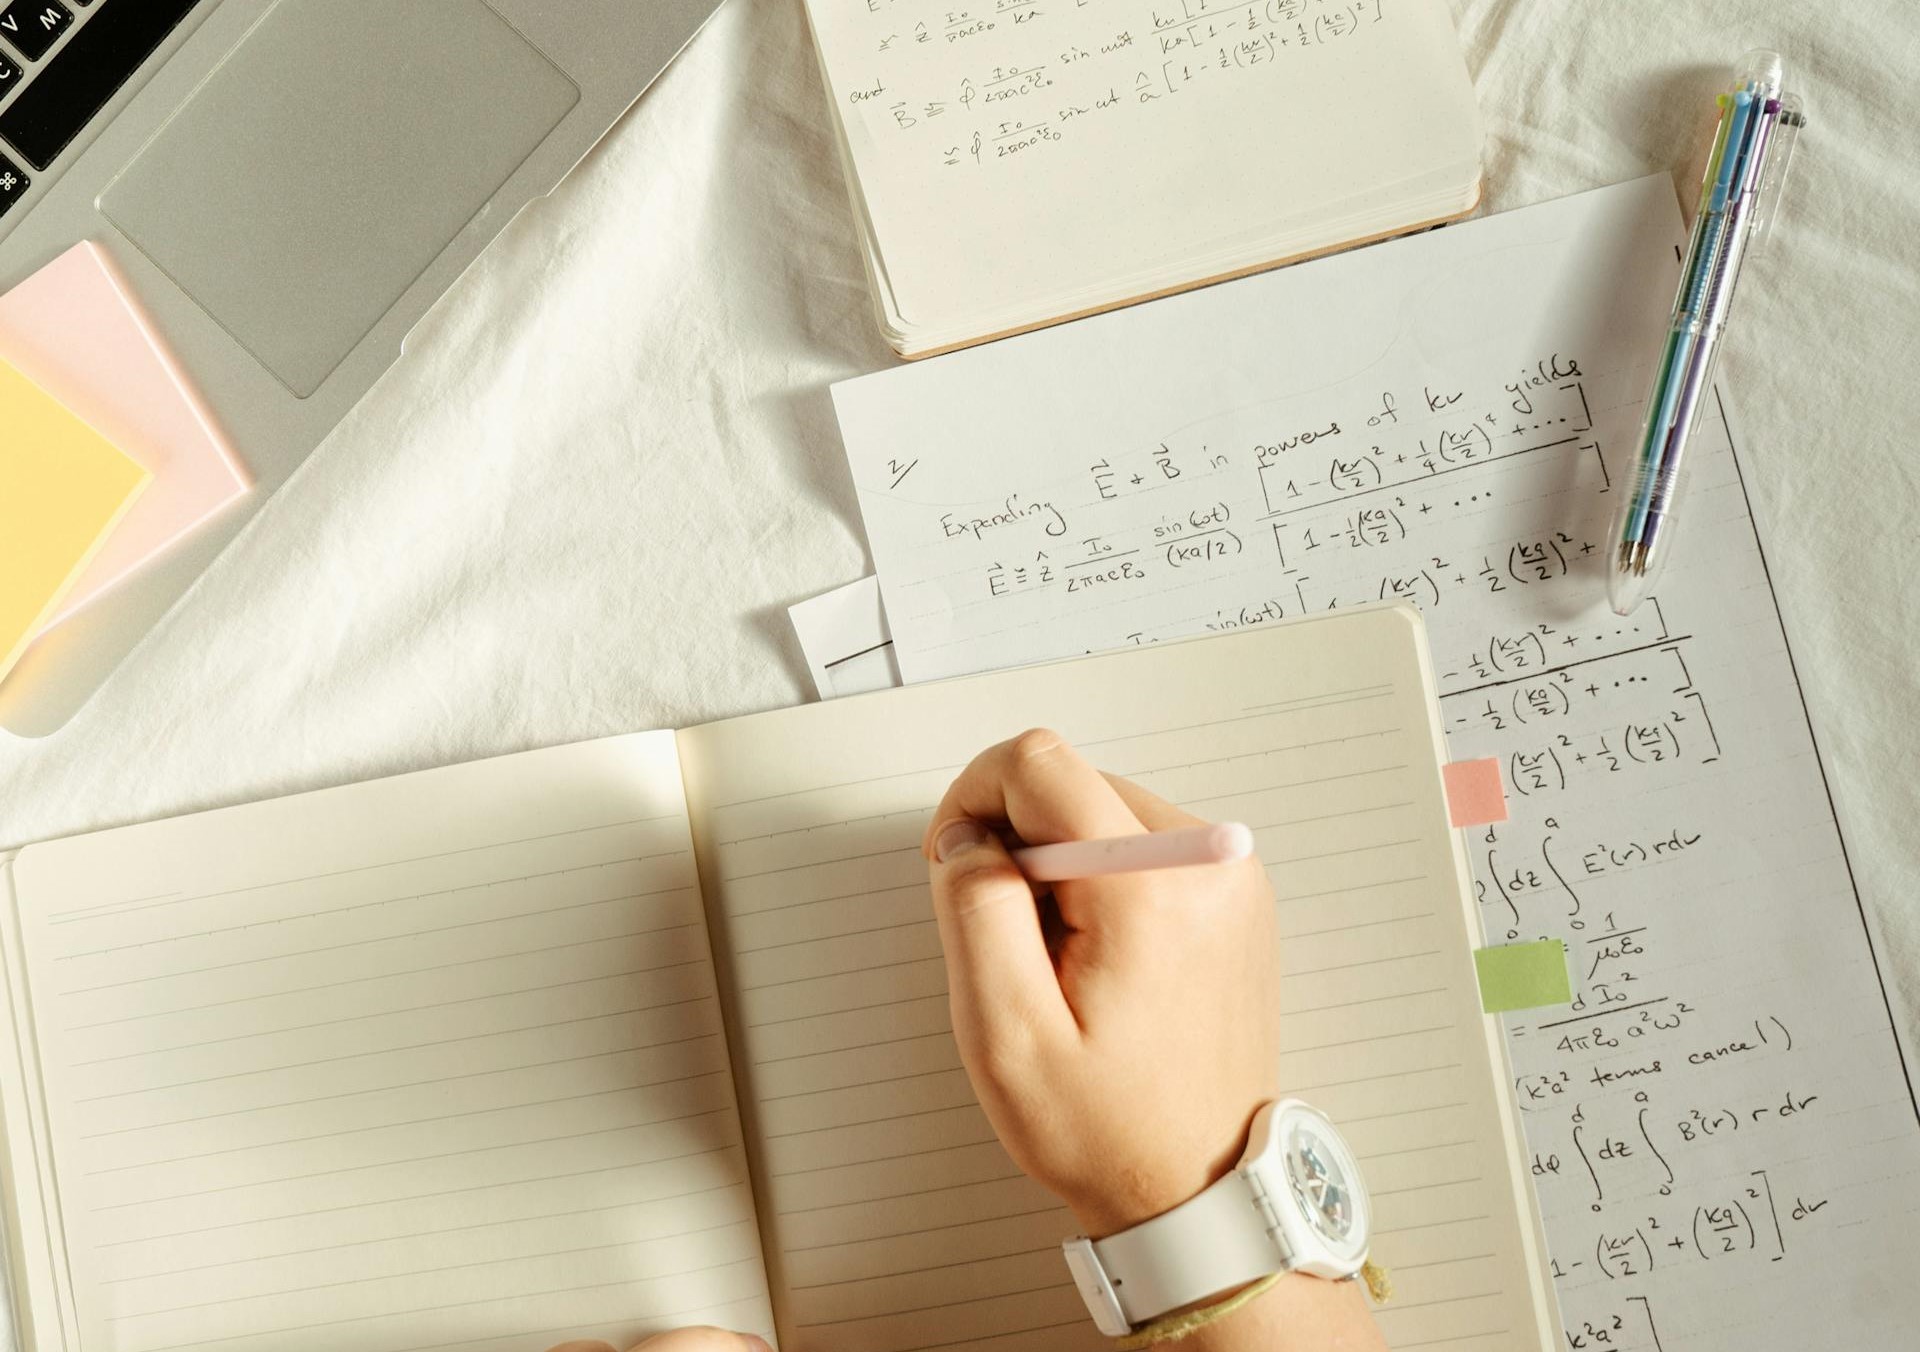 V M
C
⌘
and
B⃗ ≅ φ̂ I₀/(2πac²ε₀) sin ωt kr[1 - ½(kr/2)²]/(ka[1 - ½(ka/2)²])
≅ φ̂ I₀/(2πac²ε₀) sin ωt r/a [1 - ½(kr/2)² + ½(ka/2)²]
2/
Expanding E⃗ + B⃗ in powers of kr yields
E⃗ ≅ ẑ I₀/(2πacε₀) sin(ωt)/(ka/2) [1 - (kr/2)² + ¼(kr/2)⁴ + ...]/[1 - ½(ka/2)² + ...
I₀ sin(ωt) [1 - (kr/2)² + ½(ka/2)² +
- ½(kr/2)² + ...]
- ½(ka/2)² + ...]
(kr/2)² + ½(ka/2)²]
∫₀ᵈ dz ∫₀ᵃ E²(r) r dr
= 1/(μ₀ε₀)
= d I₀²/(4πε₀ a²ω²)
(k²a² terms cancel)
dφ ∫₀ᵈ dz ∫₀ᵃ B²(r) r dr
1 - (kr/2)² + (ka/2)²] dr
k²a²]